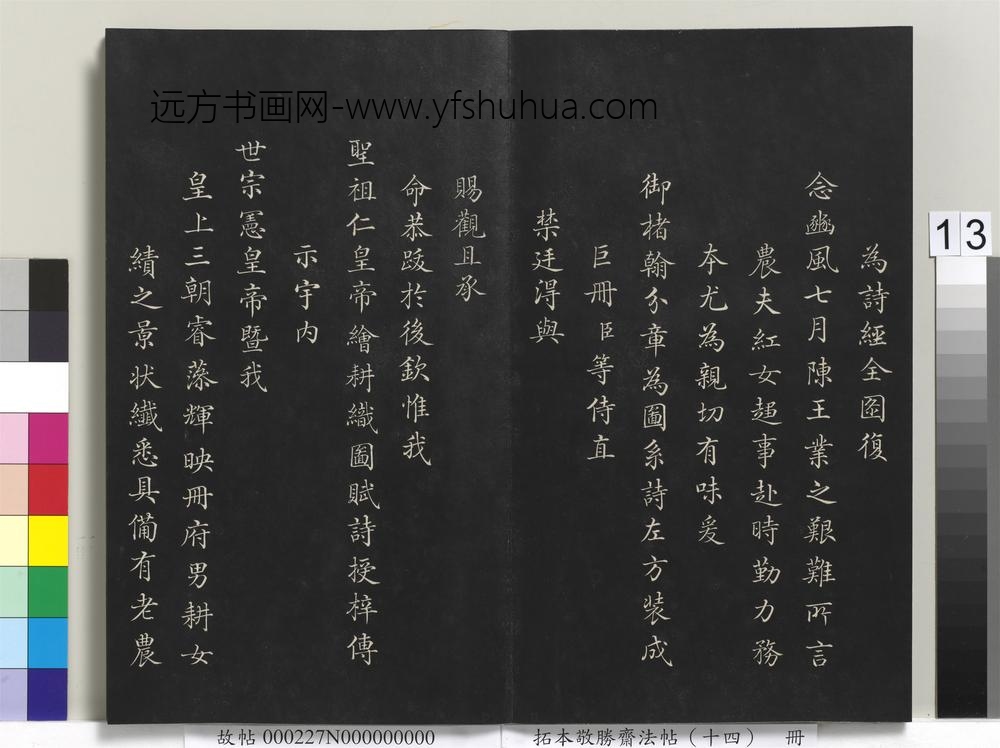 远方书画网-www.yfshuhua.com
為詩經全圖復
念豳風七月陳王業之艱難所言
農夫紅女趨事赴時勤力務
本尤為親切有味爰
御楮翰分章為圖系詩左方裝成
巨冊臣等侍直
禁廷淂與
賜觀且承
命恭跋於後欽惟我
聖祖仁皇帝繪耕織圖賦詩授梓傳
示宇内
世宗憲皇帝暨我
皇上三朝睿藻輝映冊府男耕女
績之景状纖悉具備有老農
13
故帖 000227N000000000
拓本敬勝齋法帖（十四） 冊